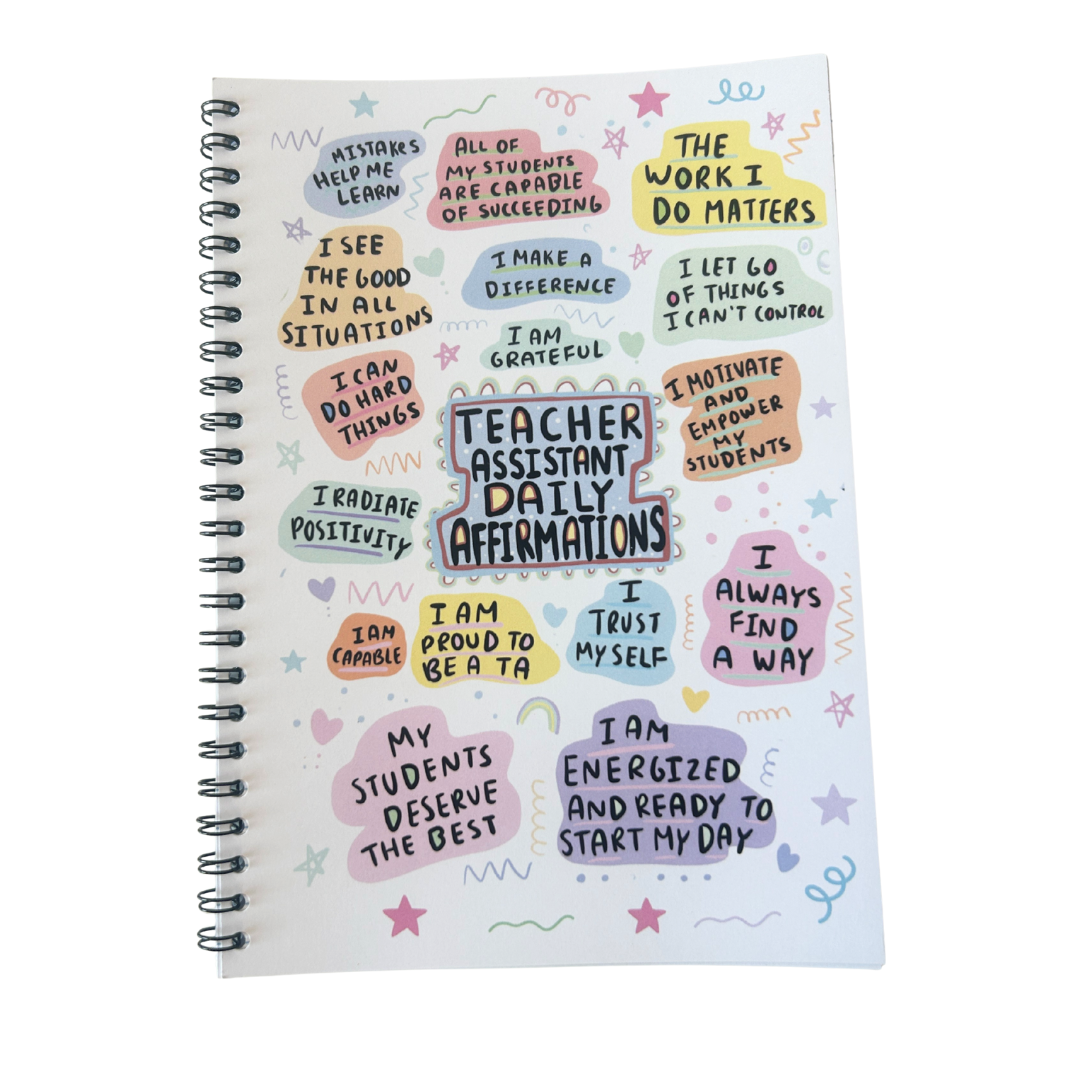 MISTAKES
HELP ME
LEARN
ALL OF
MY STUDENTS
ARE CAPABLE
OF SUCCEEDING
THE
WORK I
DO MATTERS
I SEE
THE GOOD
IN ALL
SITUATIONS
I MAKE A
DIFFERENCE
I LET GO
OF THINGS
I CAN'T CONTROL
I AM
GRATEFUL
I CAN
DO HARD
THINGS
TEACHER
ASSISTANT
DAILY
AFFIRMATIONS
I MOTIVATE
AND
EMPOWER
MY
STUDENTS
I RADIATE
POSITIVITY
I AM
CAPABLE
I AM
PROUD TO
BE A TA
I
TRUST
MYSELF
I
ALWAYS
FIND
A WAY
MY
STUDENTS
DESERVE
THE BEST
I AM
ENERGIZED
AND READY TO
START MY DAY